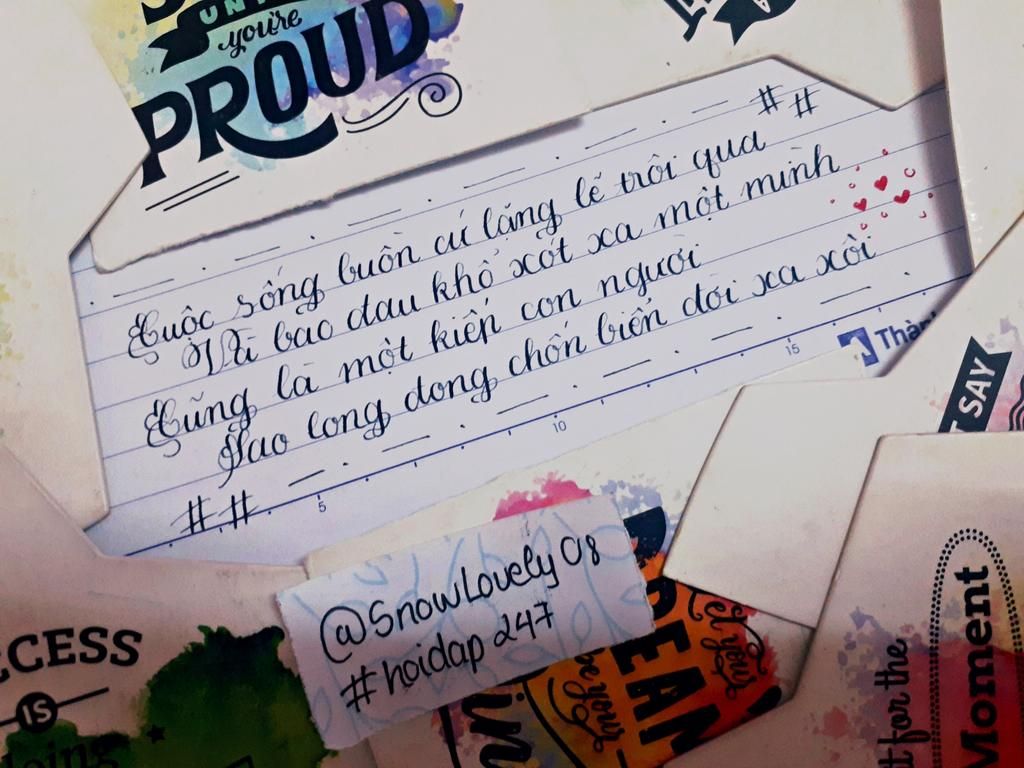 UN
you're
PROUD
# #
Cuộc sống buồn cứ lặng lẽ trôi qua
Vì bao đau khổ xót xa một mình
Cũng là một kiếp con người
Sao long dong chốn biển đời xa xôi
# #
5
10
15
Thàn
T SAY
@SnowLovely 08
#hoidap 247
CCESS
IS
oing
DREAM
If your
be your
in
t for the
Moment